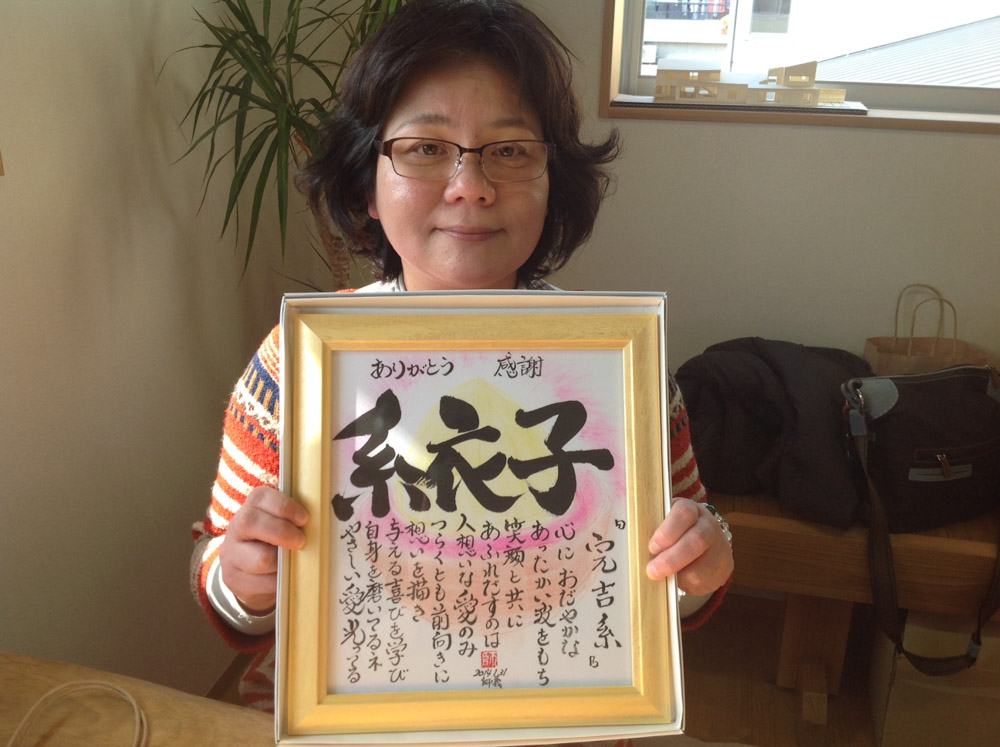 ありがとう 感謝
糸衣子
『完吉糸』
心におだやかな
あったかい波をもち
笑顔と共に
あふれだすのは
人想いな愛のみ
つらくとも前向きに
想いを描き
与える喜びを学び
自身を磨いてるネ
やさしい愛光ってる